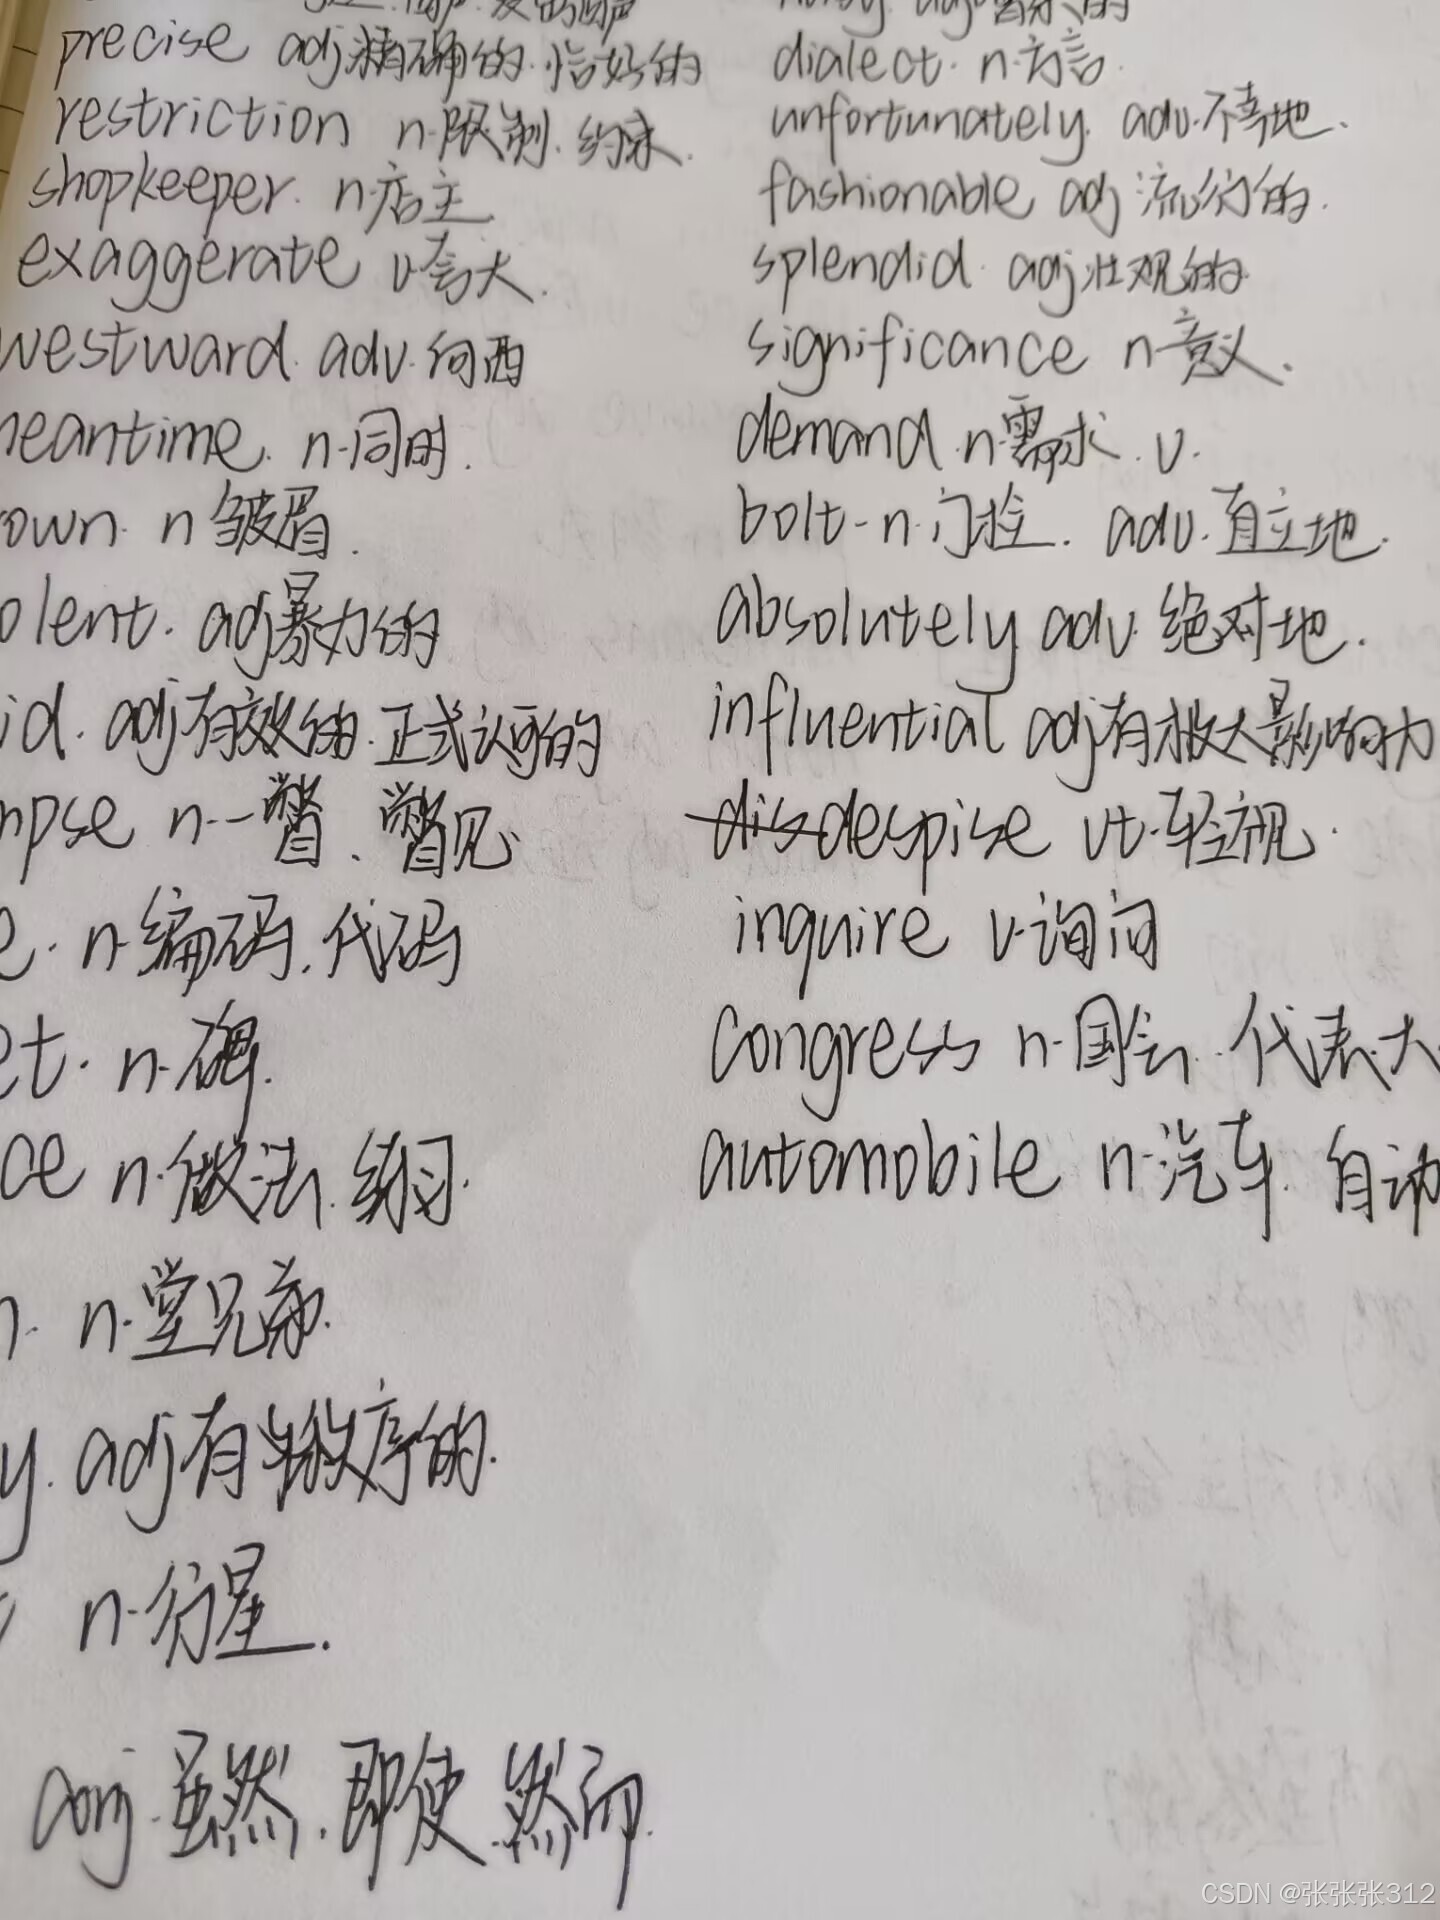 precise adj精确的.恰好的
restriction n.限制.约束.
shopkeeper. n.店主
exaggerate v.夸大.
westward. adv.向西
neantime. n.同时.
own. n皱眉.
olent. adj暴力的
id. adj有效的.正式认可的
mpse n.一瞥、瞥见
e. n.编码.代码
et. n.碑.
ce n.做法.练习.
n. n.堂兄弟.
y. adj有秩序的.
n.行星.
conj.虽然.即使.然而.
dialect. n.方言.
unfortunately. adv.不幸地.
fashionable adj流行的.
splendid. adj壮观的
significance n.意义.
demand n.需求.v.
bolt-n.门栓. adv.直立地.
absolutely adv.绝对地.
influential adj有极大影响力
dis despise vt.轻视.
inquire v.询问
congress n.国会.代表大
automobile n.汽车.自动
CSDN @张张张312